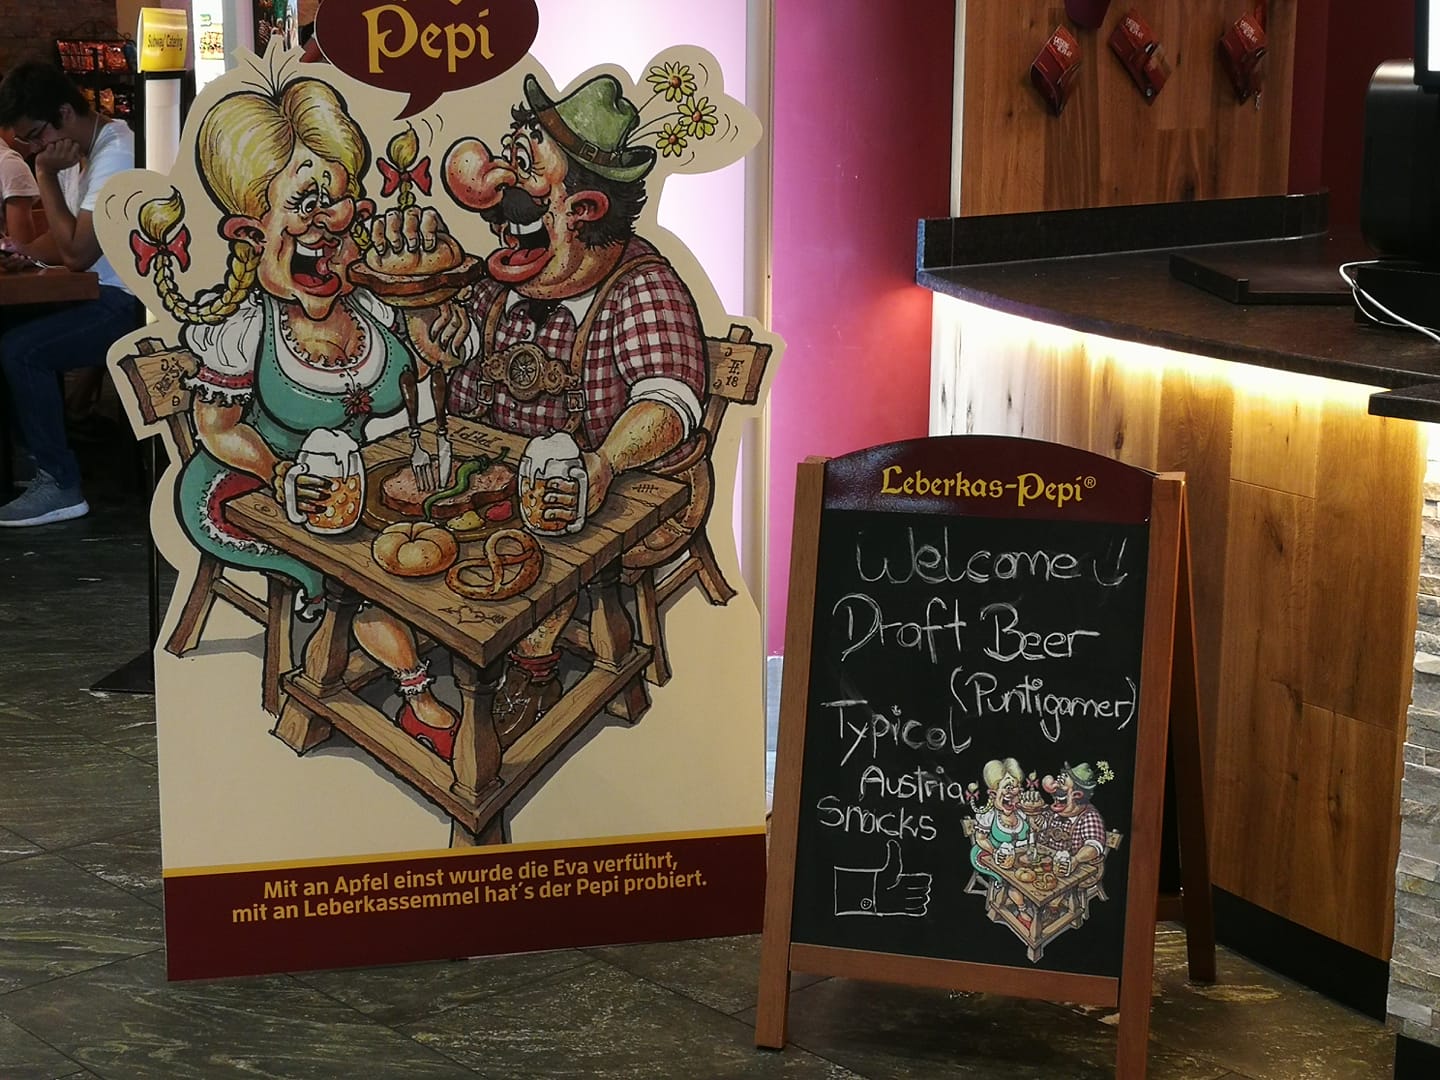 Subway Catering
Pepi
18
Mit an Apfel einst wurde die Eva verführt,
mit an Leberkassemmel hat's der Pepi probiert.
Leberkas-Pepi®
Welcome
Draft Beer
(Puntigamer)
Typical
Austria
Snacks